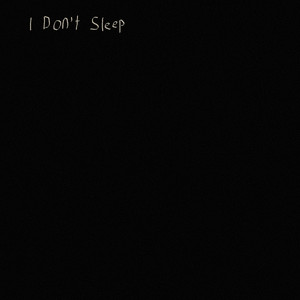 I Don't Sleep